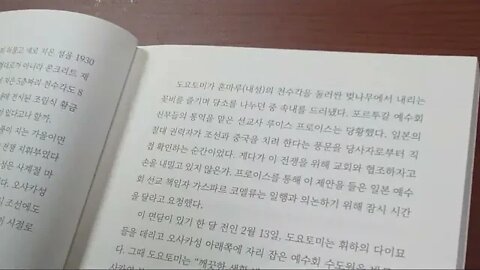 허물고 새로 지은 일을 1930
니라 콘크리트 재
5층짜리 천수각도 8
전시된 조립식 황금
있다고나 할까.
이 지는 가을이면
전쟁 지휘부였다
상은 사계절 마
다. 오사카성
조선에도
시절로
도요토미가 혼마루(내성)의 천수각을 둘러싼 벚나무에서 내리는
꽃비를 즐기며 담소를 나누던 중 속내를 드러냈다. 포르투갈 예수회
신부들의 통역을 맡은 선교사 루이스 프로이스는 당황했다. 일본의
절대 권력자가 조선과 중국을 치려 한다는 풍문을 당사자로부터 직
접 확인하는 순간이었다. 게다가 이 전쟁을 위해 교회와 협조하자고
손을 내밀고 있지 않은가. 프로이스를 통해 이 제안을 들은 일본 예수
회 선교 책임자 가스파르 코엘류는 일행과 의논하기 위해 잠시 시간
을 달라고 요청했다.
이 면담이 있기 한 달 전인 2월 13일, 도요토미는 휘하의 다이묘
들을 데리고 오사카성 아래쪽에 자리 잡은 예수회 수도원을
다. 그때 도요토미는 "깨끗한